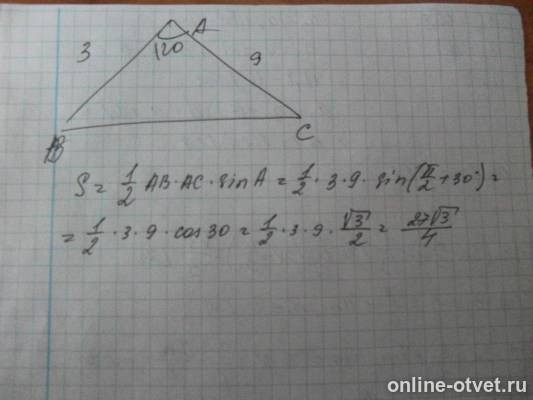 A
3
120
9
B
C
S = 1/2 AB · AC · sin A = 1/2 · 3 · 9 · sin(π/2 + 30°) =
= 1/2 · 3 · 9 · cos 30 = 1/2 · 3 · 9 · √3/2 = 27√3/4
online-otvet.ru